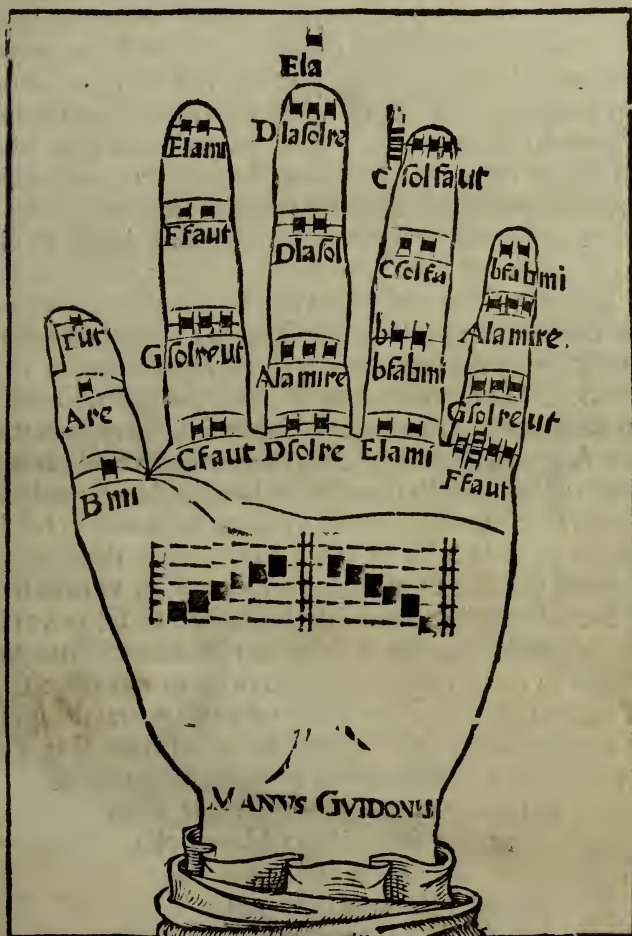 Ela
Elami
Dlaſolre
Cſolfaut
Ffaut
Dlaſol
Cſolfa
bfabmi
Γut
Gſolre.ut
Alamire
b
bfabmi
Alamire.
Are
Gſolreut
Cfaut
Dſolre
Elami
Ffaut
Bmi
MANVS GVIDONIS